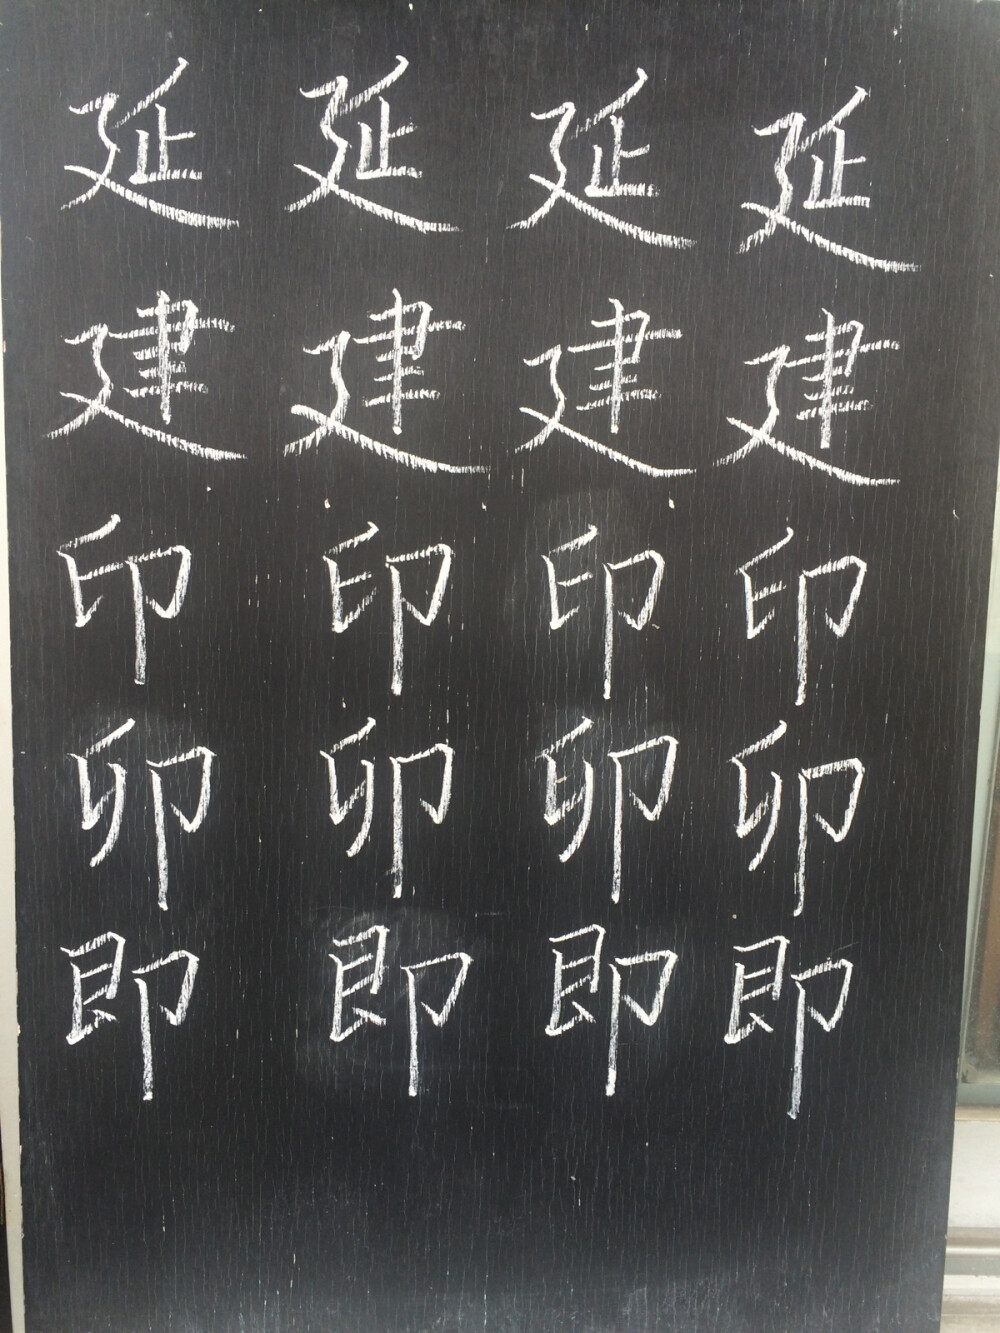 延延延延
建建建建
印印印印
卯卯卯卯
即即即即